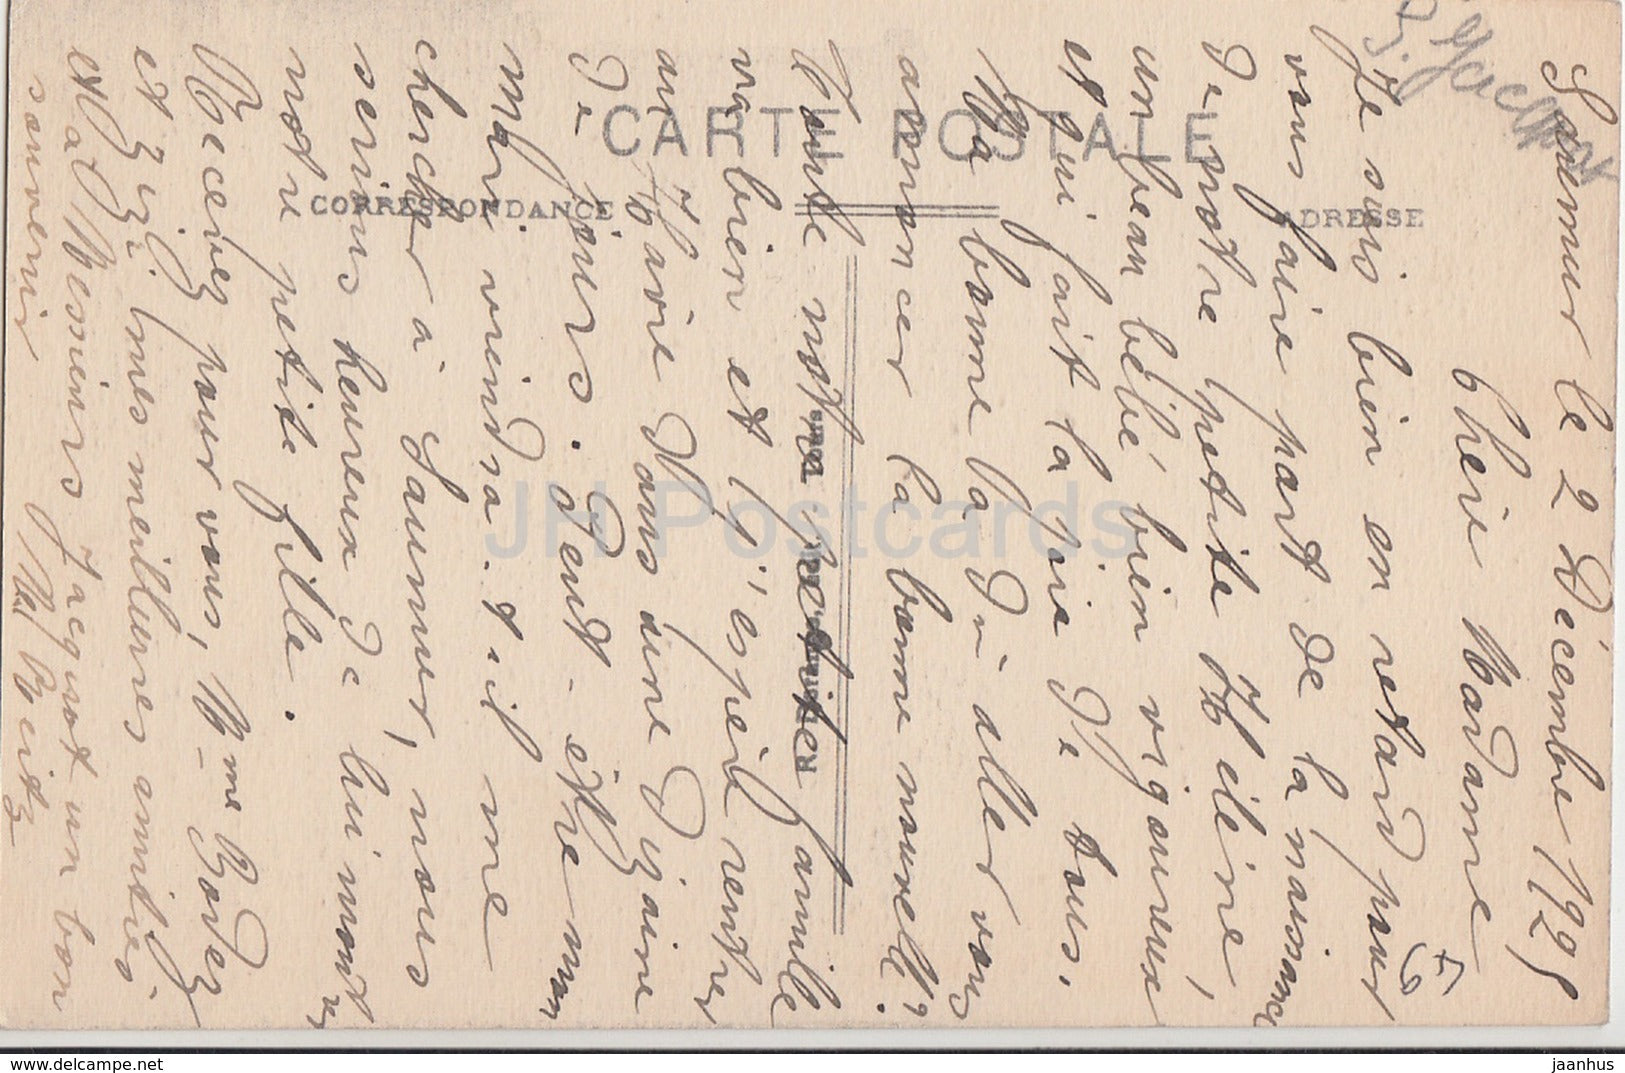 Saumur le 2 Décembre 1925
Chère Madame
Je suis bien en retard pour
vous faire part de la naissance
de notre petite Hélène,
un beau bébé bien vigoureux
et qui fait la joie de tous.
Ma bonne a dû aller vous
annoncer la bonne nouvelle.
Toute notre petite famille
va bien et j'espère rentrer
au Havre dans une dizaine
de jours. Peut-être mon
mari viendra-t-il me
chercher à Saumur, nous
serions heureux de lui montrer
notre petite fille.
Recevez pour vous, Mme Bodez
et mes meilleures amitiés
et à Messieurs Jacquot un bon
souvenir
CARTE POSTALE
CORRESPONDANCE
ADRESSE
JH Postcards
jaanhus